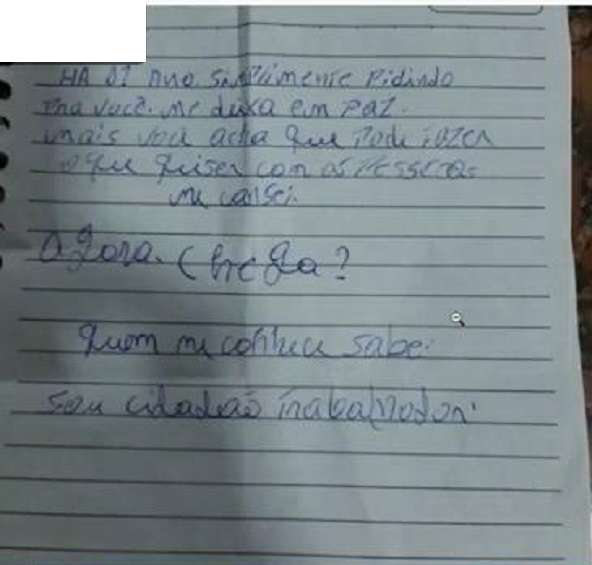 HA 01 Ano simplimente Pidindo
Pra você. me deixa em Paz.
mais você acha que Pode fazer
o que quiser com as Pessoas
me cansei.
agora. Chega?
quem me conhece sabe.
Sou cidadão trabalhador.